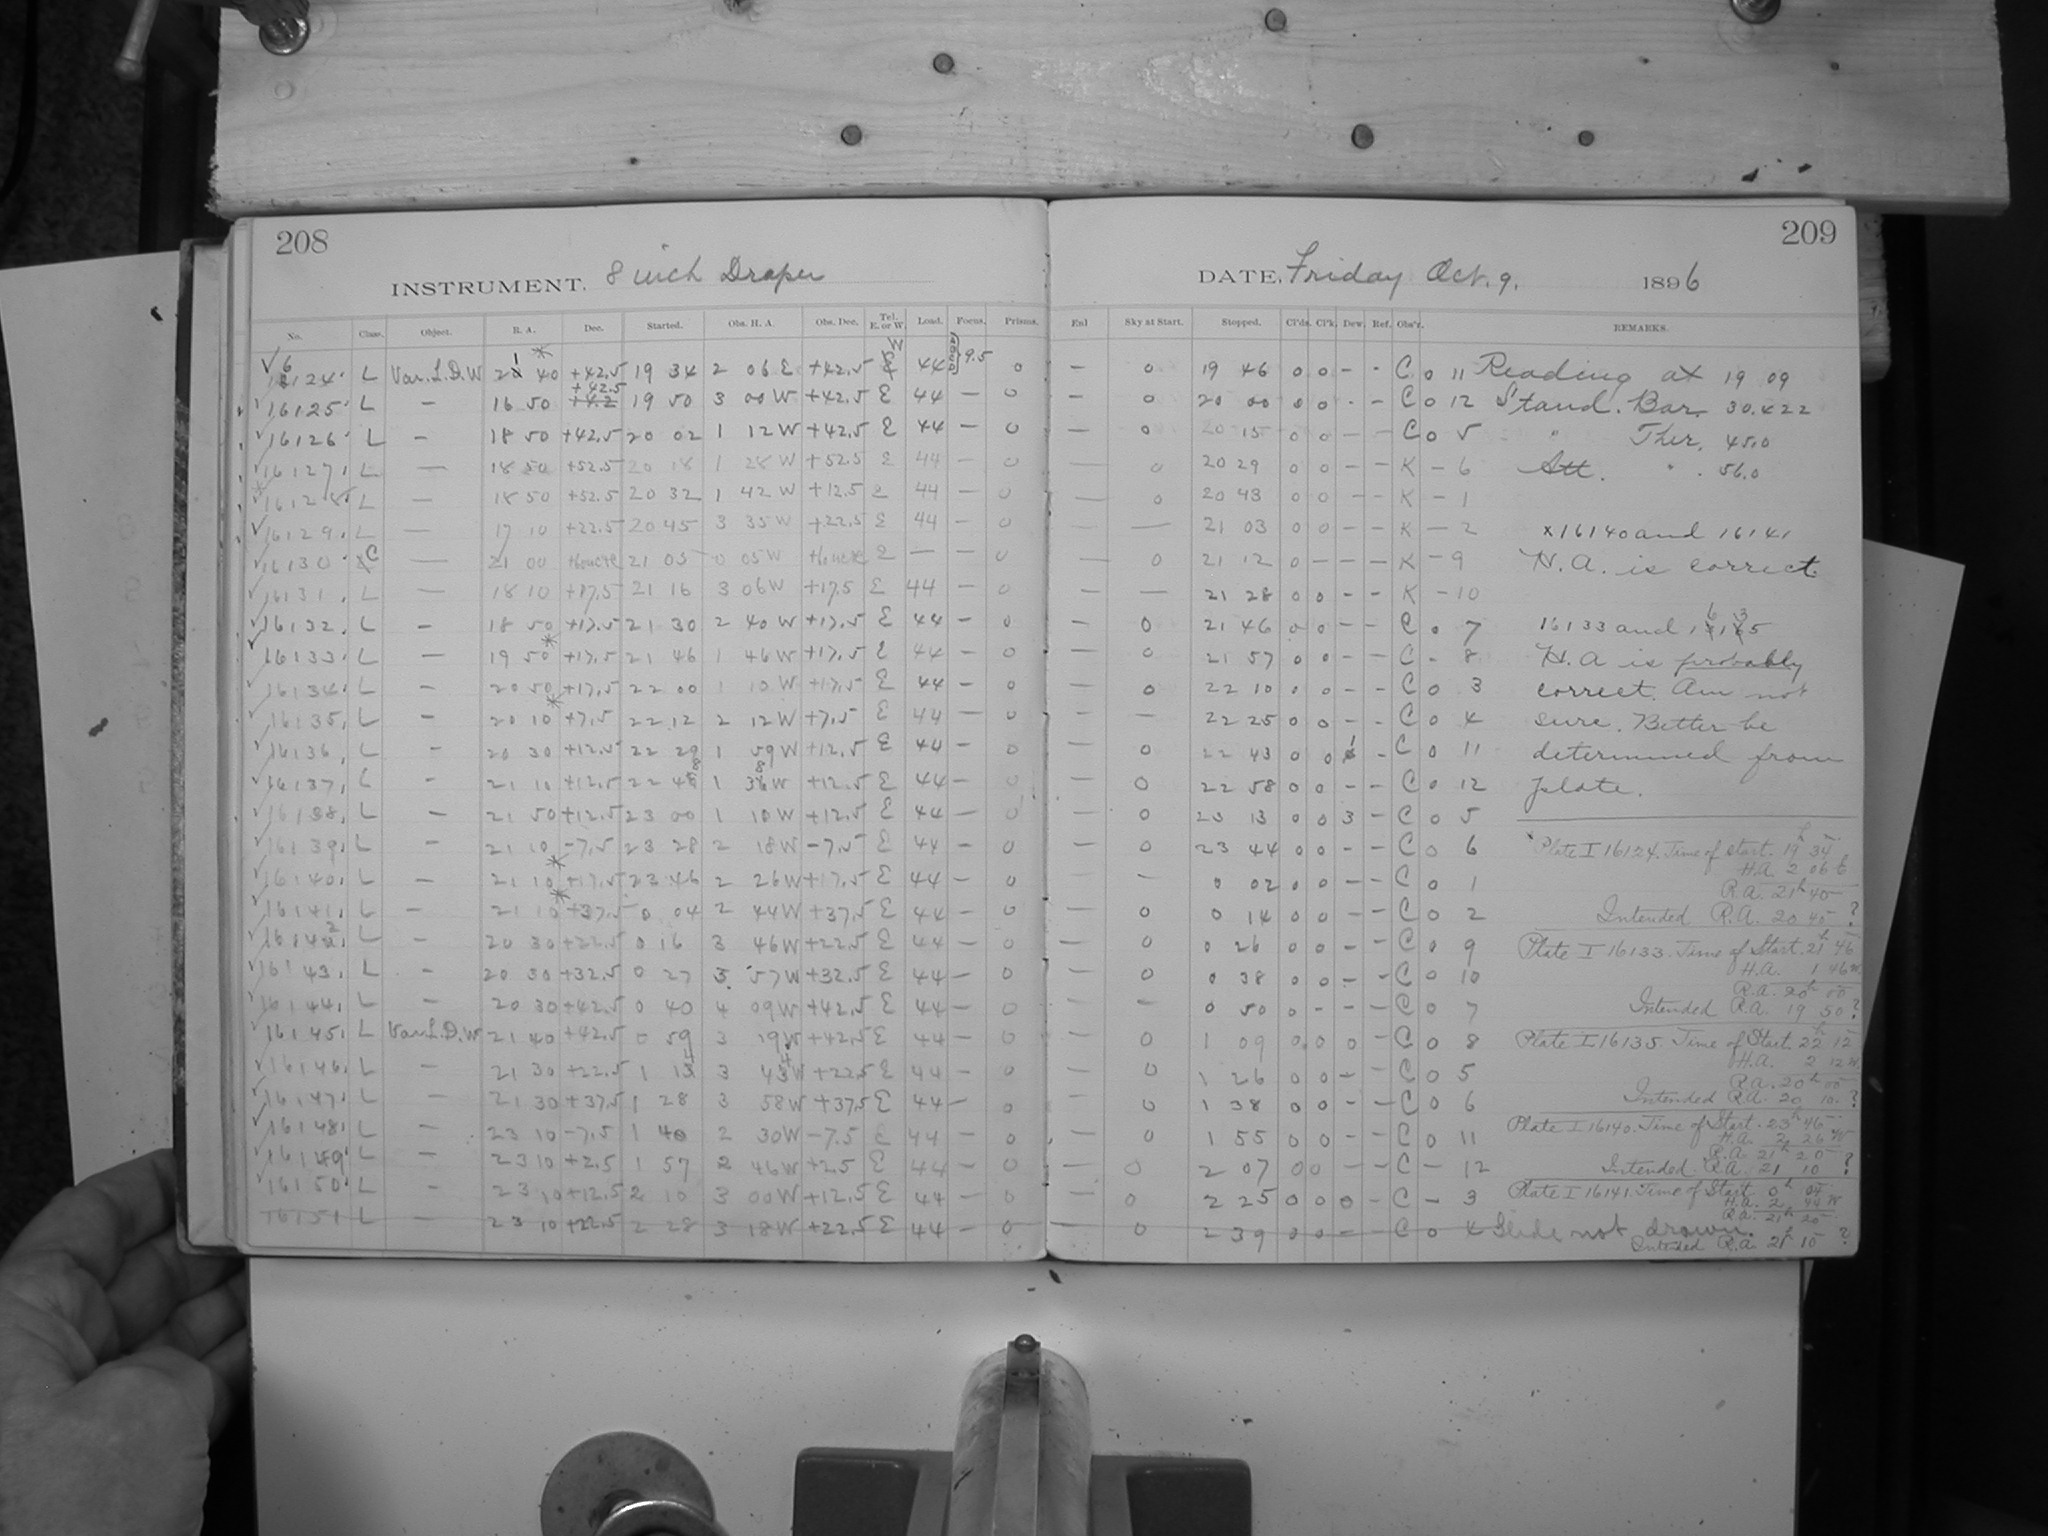 208
209
INSTRUMENT. 8 inch Draper
DATE, Friday Oct. 9. 1896
No. Class. Object. R. A. Dec. Started. Obs. H. A. Obs. Dec. Tel. E. or W. Load. Focus. Prisms. Enl Sky at Start. Stopped. Cl'ds. Cl'k. Dew. Ref. Obs'r. REMARKS.
16124 L Var. L.D.W 21 40 +42.5 19 34 2 06 E +42.5 W 44 9.5 0 — 0 19 46 0 0 - - C 0 11 Reading at 19 09
16125 L — 16 50 +42.5 19 50 3 00 W +42.5 E 44 — 0 — 0 20 00 0 0 - - C 0 12 Stand. Bar. 30.422
16126 L — 18 50 +42.5 20 02 1 12 W +42.5 E 44 — 0 — 0 20 15 0 0 - - C 0 5 " Ther. 45.0
16127 L — 18 50 +52.5 20 18 1 28 W +52.5 E 44 — 0 — 0 20 29 0 0 - - K - 6 Att. " 56.0
16128 L — 18 50 +52.5 20 32 1 42 W +12.5 E 44 — 0 — 0 20 43 0 0 - - K - 1
16129 L — 17 10 +22.5 20 45 3 35 W +22.5 E 44 — 0 — — 21 03 0 0 - - K - 2 x16140 and 16141
16130 C — 21 00 21 05 0 05 W E — — 0 — 0 21 12 0 - - - K - 9 H.A. is correct
16131 L — 18 10 +17.5 21 16 3 06 W +17.5 E 44 0 — — 21 28 0 0 - - K - 10
16132 L — 18 50 +17.5 21 30 2 40 W +17.5 E 44 — 0 — 0 21 46 0 0 - - C 0 7 16133 and 16135
16133 L — 19 50 +17.5 21 46 1 46 W +17.5 E 44 — 0 — 0 21 57 0 0 - - C - 8 H.A is probably
16134 L — 20 50 +17.5 22 00 1 10 W +17.5 E 44 — 0 — 0 22 10 0 0 - - C 0 3 correct. Am not
16135 L — 20 10 +7.5 22 12 2 12 W +7.5 E 44 — 0 — — 22 25 0 0 - - C 0 4 sure. Better be
16136 L — 20 30 +12.5 22 29 1 59 W +12.5 E 44 — 0 — 0 22 43 0 0 1 - C 0 11 determined from
16137 L — 21 10 +12.5 22 48 1 38 W +12.5 E 44 — 0 — 0 22 58 0 0 - - C 0 12 plate.
16138 L — 21 50 +12.5 23 00 1 10 W +12.5 E 44 — 0 — 0 23 13 0 0 3 - C 0 5
16139 L — 21 10 -7.5 23 28 2 18 W -7.5 E 44 — 0 — 0 23 44 0 0 - - C 0 6 Plate I 16124. Time of start. 19h 34m
H.A. 2 06 E
16140 L — 21 10 +17.5 23 46 2 26 W +17.5 E 44 — 0 — — 0 02 0 0 - - C 0 1 R.A. 21h 40
16141 L — 21 10 +37.5 0 04 2 44 W +37.5 E 44 — 0 — 0 0 14 0 0 - - C 0 2 Intended R.A. 20 40 ?
16142 L — 20 30 +22.5 0 16 3 46 W +22.5 E 44 — 0 — 0 0 26 0 0 - - C 0 9 Plate I 16133. Time of Start. 21h 46
16143 L — 20 30 +32.5 0 27 3 57 W +32.5 E 44 — 0 — 0 0 38 0 0 - - C 0 10 H.A. 1 46 W
R.A. 20h 00
16144 L — 20 30 +42.5 0 40 4 09 W +42.5 E 44 — 0 — — 0 50 0 - - - C 0 7 Intended R.A. 19 50 ?
16145 L Var. L.D.W 21 40 +42.5 0 59 3 19 W +42.5 E 44 — 0 — 0 1 09 0 0 0 - C 0 8 Plate I 16135. Time of Start. 22h 12
H.A. 2 12 W
16146 L — 21 30 +22.5 1 14 3 44 W +22.5 E 44 — 0 — 0 1 26 0 0 - - C 0 5 R.A. 20h 00
16147 L — 21 30 +37.5 1 28 3 58 W +37.5 E 44 — 0 — 0 1 38 0 0 - - C 0 6 Intended R.A. 20 10. ?
16148 L — 23 10 -7.5 1 40 2 30 W -7.5 E 44 — 0 — 0 1 55 0 0 - - C 0 11 Plate I 16140. Time of Start. 23h 46
H.A. 2 26 W
R.A. 21h 20
16149 L — 23 10 +2.5 1 57 2 46 W +2.5 E 44 — 0 — 0 2 07 0 0 - - C - 12 Intended R.A. 21 10 ?
16150 L — 23 10 +12.5 2 10 3 00 W +12.5 E 44 — 0 — 0 2 25 0 0 0 - C - 3 Plate I 16141. Time of Start 0h 04
H.A. 2 44 W
R.A. 21h 20
16151 L — 23 10 +22.5 2 28 3 18 W +22.5 E 44 — 0 — 0 2 39 0 0 - - C 0 4 Slide not drawn.
Intended R.A. 21h 10 ?